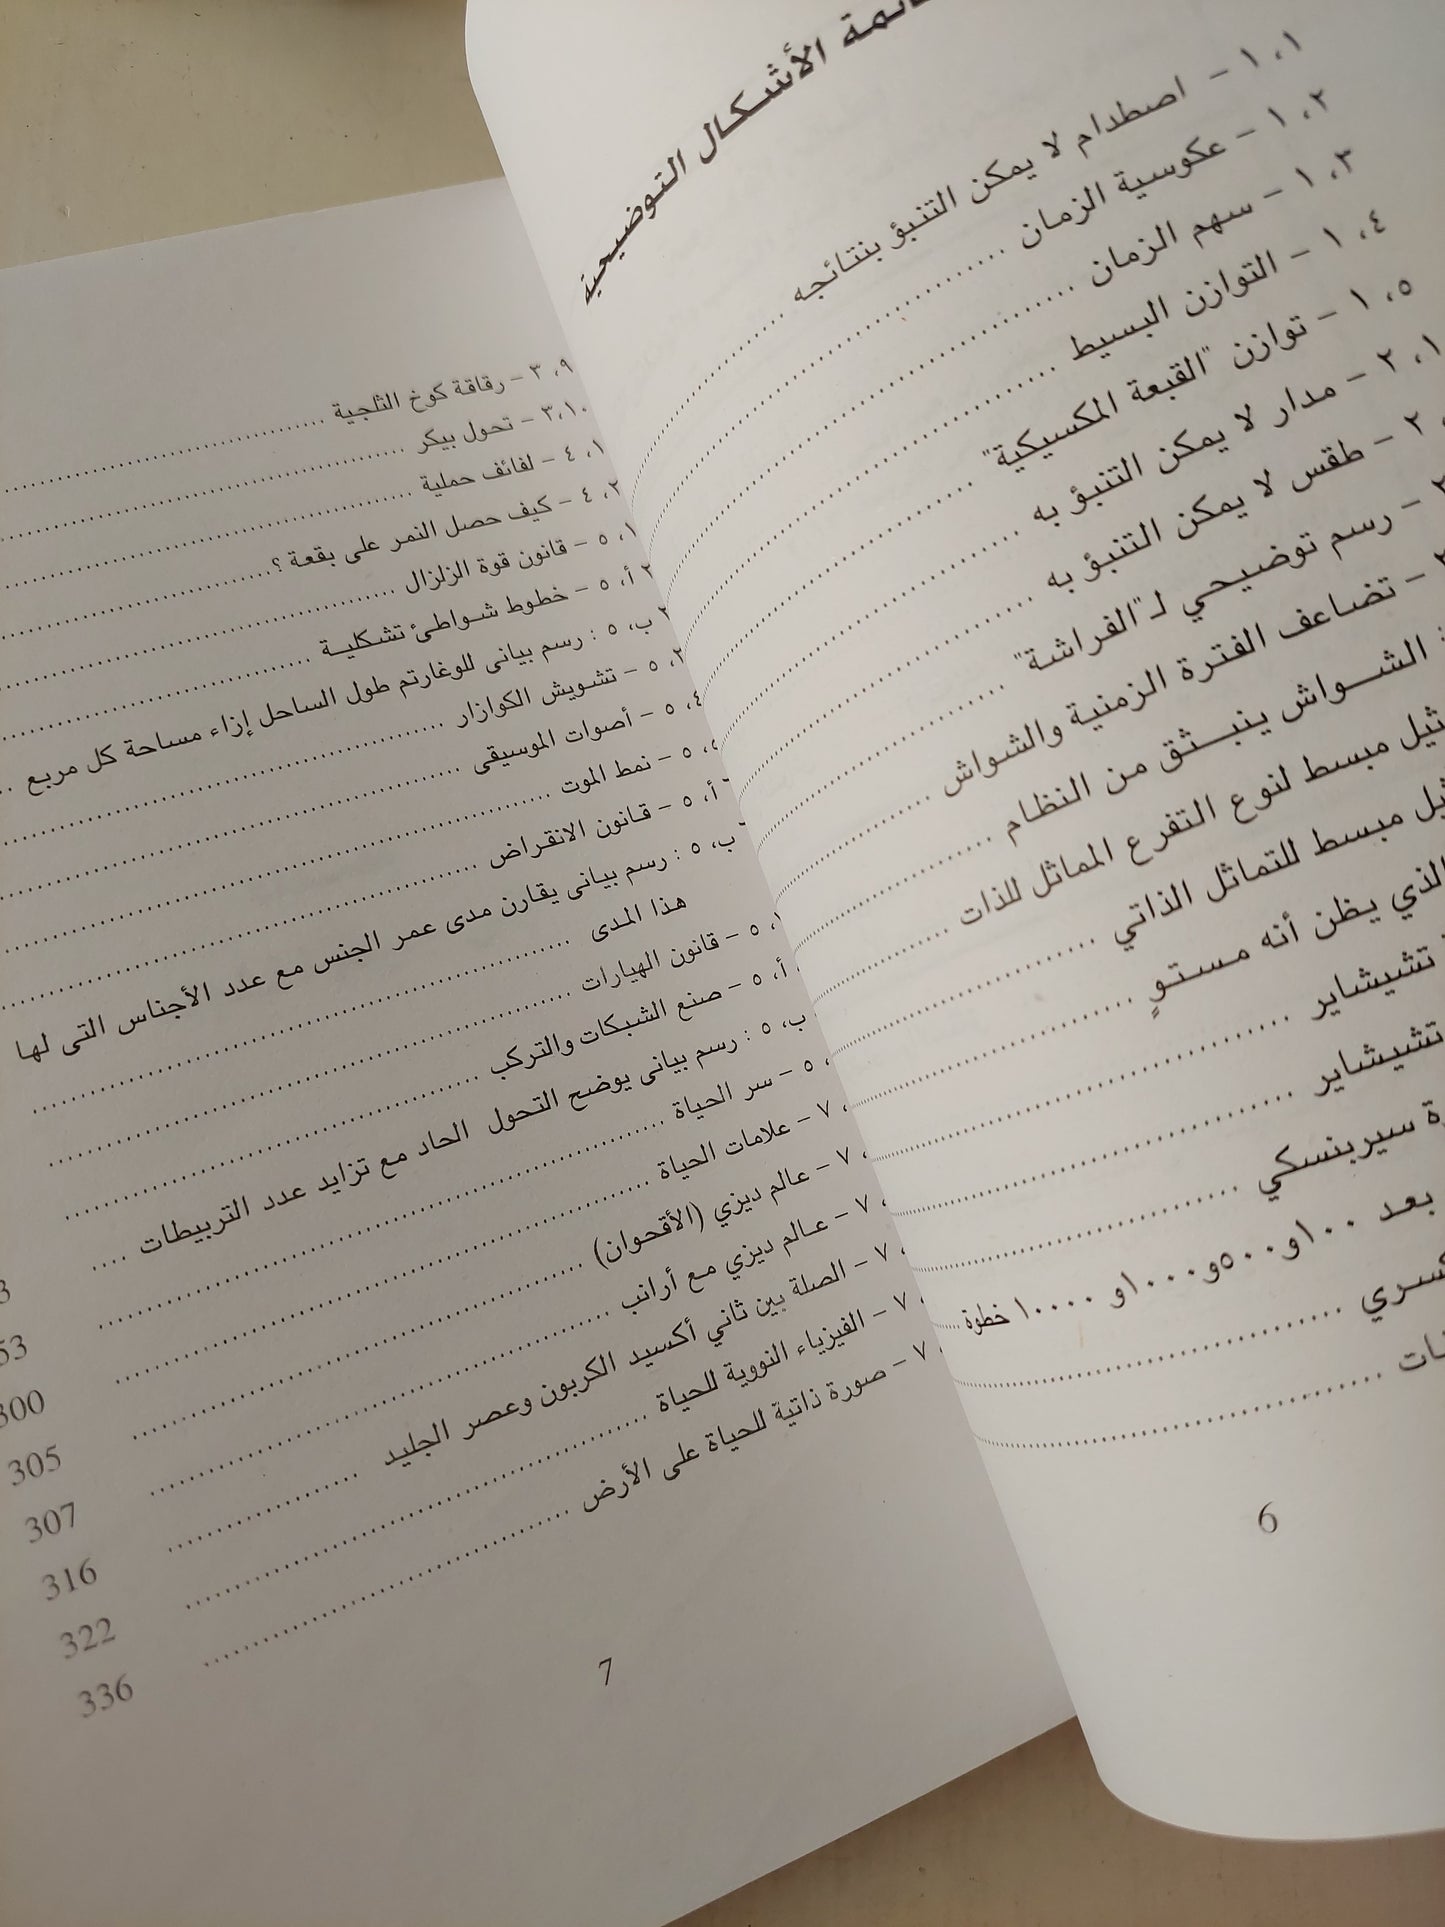 الأشكال التوضيحية
١، ١ - اصطدام لا يمكن التنبؤ بنتائجه
٢، ١ - عكوسية الزمان
٣، ١ - سهم الزمان
٤، ١ - التوازن البسيط
٥، ١ - توازن "القبعة المكسيكية"
١، ٢ - مدار لا يمكن التنبؤ به
٢ - طقس لا يمكن التنبؤ به
- رسم توضيحي لـ"الفراشة"
- تضاعف الفترة الزمنية والشواش
الشـــواش ينبـــثق من النظـام
مبسط لنوع التفرع المماثل للذات
مبسط للتماثل الذاتي
الذي يظن أنه مستوٍ
تشيشاير
تشيشاير
سيربنسكي
بعد ١٠٠و٥٠٠و١٠٠٠و ١٠٠٠٠ خطوة
6
٩، ٣ - رقاقة كوخ الثلجية
٣،١٠ - تحول بيكر
١، ٤ - لفائف حملية
٢، ٤ - كيف حصل النمر على بقعة ؟
١، ٥ - قانون قوة الزلزال
٢ أ، ٥ - خطوط شـواطئ تشكليــة
٢ ب، ٥ : رسم بيانى للوغارتم طول الساحل إزاء مساحة كل مربع
٥ - تشويش الكوازار
٤، ٥ - أصوات الموسيقى
٥ - نمط الموت
أ، ٥ - قانون الانقراض
ب، ٥ : رسم بيانى يقارن مدى عمر الجنس مع عدد الأجناس التى لها
هذا المدى
٥ - قانون الهيارات
أ، ٥ - صنع الشبكات والتركب
ب، ٥ : رسم بيانى يوضح التحول الحاد مع تزايد عدد التربيطات
٥ - سر الحياة
٧ - علامات الحياة
٧ - عالم ديزي (الأقحوان)
٧ - عالم ديزي مع أرانب
٧ - الصلة بين ثاني أكسيد الكربون وعصر الجليد
٧ - الفيزياء النووية للحياة
٧ - صورة ذاتية للحياة على الأرض
300
305
307
316
322
336
7